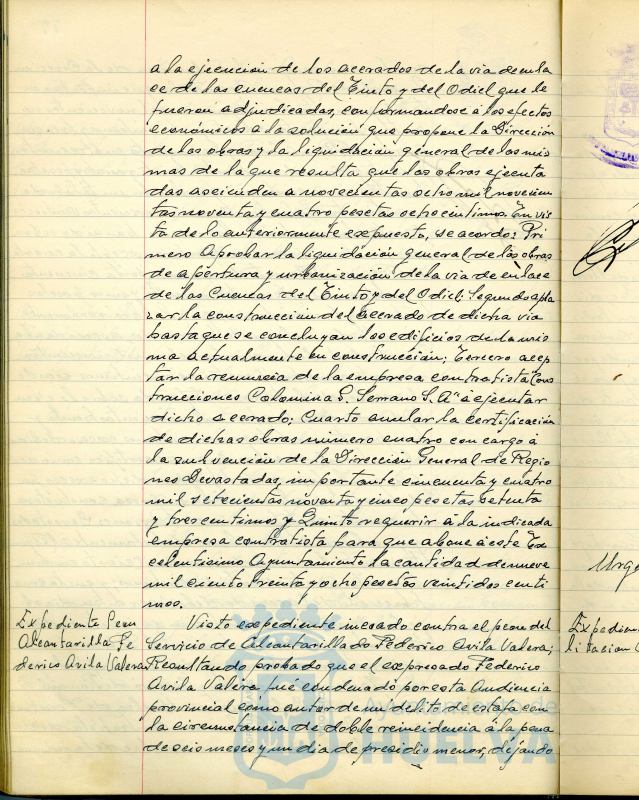 a la ejecución de los acerados de la via de enla
ce de las cuencas del Tinto y del Odiel que le
fueron adjudicadas, conformandose a los efectos
económicos a la solución que propone la Dirección
de las obras y la liquidación general de las mis
mas de la que resulta que las obras ejecuta
das ascienden a novecientas ocho mil novecien
tas noventa y cuatro pesetas ocho centimos. En vis
ta de lo anteriormente expuesto, se acordo: Pri
mero Aprobar la liquidación general de las obras
de apertura y urbanización de la via de enlace
de las Cuencas del Tinto y del Odiel: Segundo apla
zar la construcción del acerado de dicha via
hasta que se concluyan los edificios de la mis
ma actualmente en construcción; Tercero acep
tar la renuncia de la empresa contratista Cons
trucciones Colomina G. Serrano S.Aª a ejecutar
dicho acerado; Cuarto anular la certificación
de dichas obras número cuatro con cargo á
la subvención de la Dirección General de Regio
nes Devastadas, importante cincuenta y cuatro
mil setecientas noventa y cinco pesetas setenta
y tres centimos y Quinto requerir á la indicada
empresa contratista para que abone á este Ex
celentisimo Ayuntamiento la cantidad de nueve
mil ciento treinta y ocho pesetas veintidos centi
mos.
Expediente Peon
Alcantarilla Fe
derico Avila Valera
Visto expediente incoado contra el peon del
Servicio de Alcantarillado Federico Avila Valera;
Resultando probado que el expresado Federico
Avila Valera fué condenado por esta Audiencia
provincial como autor de un delito de estafa con
la circunstancia de doble reincidencia á la pena
de seis meses y un dia de presidio menor, dejando
Urge
Expedien
litacion
HUELVA